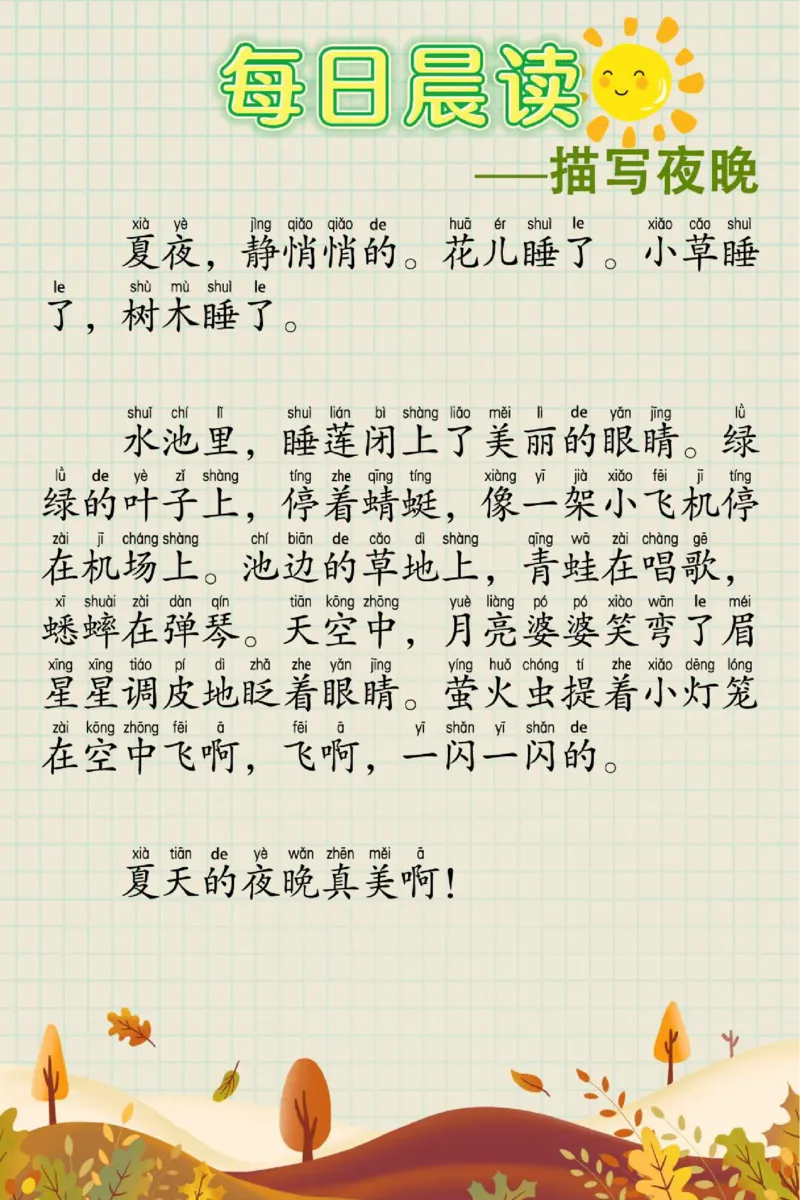 每日晨读
——描写夜晚
xià yè jìng qiǎo qiǎo de huā ér shuì le xiǎo cǎo shuì
夏夜，静悄悄的。花儿睡了。小草睡
le shù mù shuì le
了，树木睡了。
shuǐ chí lǐ shuì lián bì shàng liǎo měi lì de yǎn jīng lǜ
水池里，睡莲闭上了美丽的眼睛。绿
lǜ de yè zǐ shàng tíng zhe qīng tíng xiàng yī jià xiǎo fēi jī tíng
绿的叶子上，停着蜻蜓，像一架小飞机停
zài jī cháng shàng chí biān de cǎo dì shàng qīng wā zài chàng gē
在机场上。池边的草地上，青蛙在唱歌，
xī shuài zài dàn qín tiān kōng zhōng yuè liàng pó pó xiào wān le méi
蟋蟀在弹琴。天空中，月亮婆婆笑弯了眉
xīng xīng tiáo pí dì zhǎ zhe yǎn jīng yíng huǒ chóng tí zhe xiǎo dēng lóng
星星调皮地眨着眼睛。萤火虫提着小灯笼
zài kōng zhōng fēi ā fēi ā yī shǎn yī shǎn de
在空中飞啊，飞啊，一闪一闪的。
xià tiān de yè wǎn zhēn měi ā
夏天的夜晚真美啊！